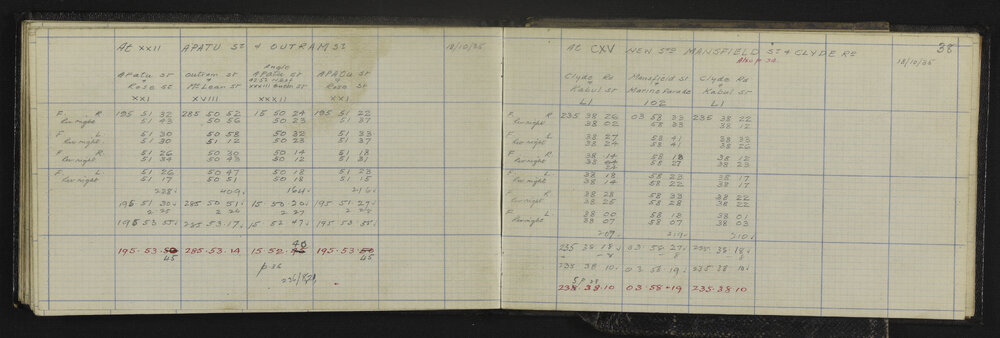 At XXII APATU ST & OUTRAM ST 18/10/35
Angle
APATU ST Outram St APATU ST APATU ST
& & 42.52 West &
Rose St McLean St XXXIII Burton St Rose St
XXI XVIII XXXII XXI
F R 195 51 32 285 50 52 15 50 24 195 51 22
Rev right 51 43 50 56 50 23 51 37
F L 51 30 50 58 50 32 51 33
Rev right 51 30 51 12 50 23 51 37
F R 51 26 50 30 50 14 51 18
Rev right 51 34 50 43 50 12 51 31
F L 51 26 50 47 50 18 51 23
Rev right 51 17 50 51 50 18 51 15
238 409 164 216
195 51 30 285 50 51 15 50 20 195 51 27
2 25 2 26 2 27 2 28
195 53 55 285 53 17 15 52 47 195 53 55
40
195.53.50 285.53.14 15 52 195.53.50
45 45
p 36
38
At CXV NEW STN MANSFIELD ST & CLYDE RD 18/10/35
Also p 32
Clyde Rd Mansfield St Clyde Rd
& & &
Kabul St Marine Parade Kabul St
LI 102 LI
F R 235 38 26 03 58 33 235 38 22
Rev right 38 02 58 33 38 12
F L 38 27 58 41 38 33
Rev right 38 24 58 41 38 22
F R 38 14 58 18 38 12
Rev right 38 24 58 27 38 23
F L 38 18 58 23 38 17
Rev right 38 14 58 22 38 17
F R 38 28 58 33 38 22
Rev right 38 25 58 28 38 22
F L 38 00 58 18 38 01
Rev right 38 07 58 07 38 03
235 38 18 03 58 27 235 38 18
- 8 - 8 - 8
235 38 10 03 58 19 235 38 10
235.38.10 03.58.19 235.38.10